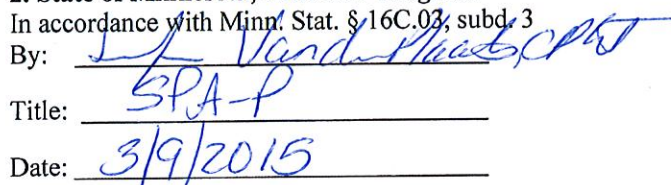 In accordance with Minn. Stat. § 16C.03, subd. 3
By: Vander Plaats, CPM
Title: SPA-P
Date: 3/9/2015